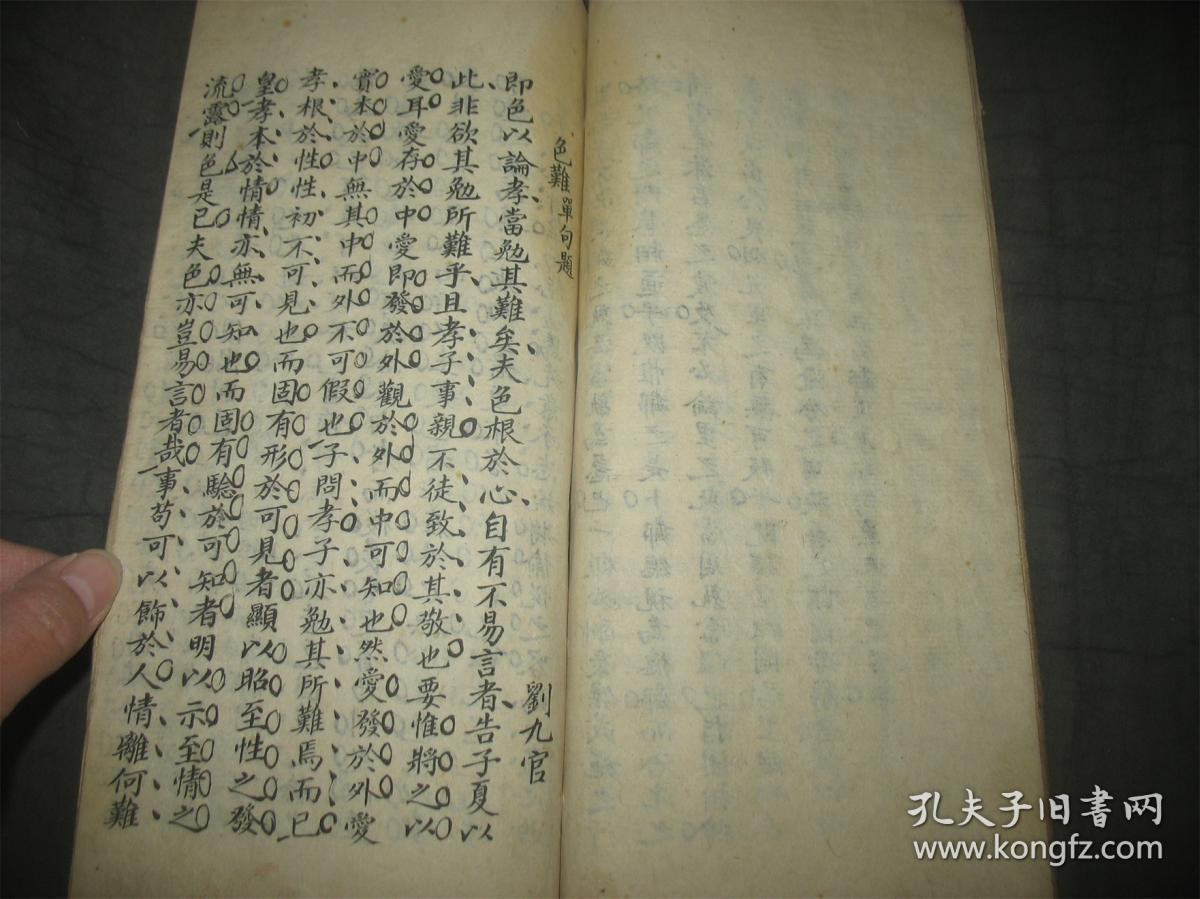 色難 單句題
劉九官
即色以論孝當勉其難矣夫色根於心自有不易言者告子夏以
此非欲其勉所難乎且孝子事親不徒致於其敬也要惟將之以
愛耳愛存於中愛即發於外觀於外而中可知也然愛發於外愛
實本於中無其中而外不可假也子問孝子亦勉其所難焉而已
孝根於性性初不可見也而固有形於可見者顯以昭至性之發
皇孝本於情情亦無可知也而固有驗於可知者明以示至情之
流露則色是已夫色亦豈易言者哉事苟可以飾於人情雖何難
孔夫子旧书网
www.kongfz.com